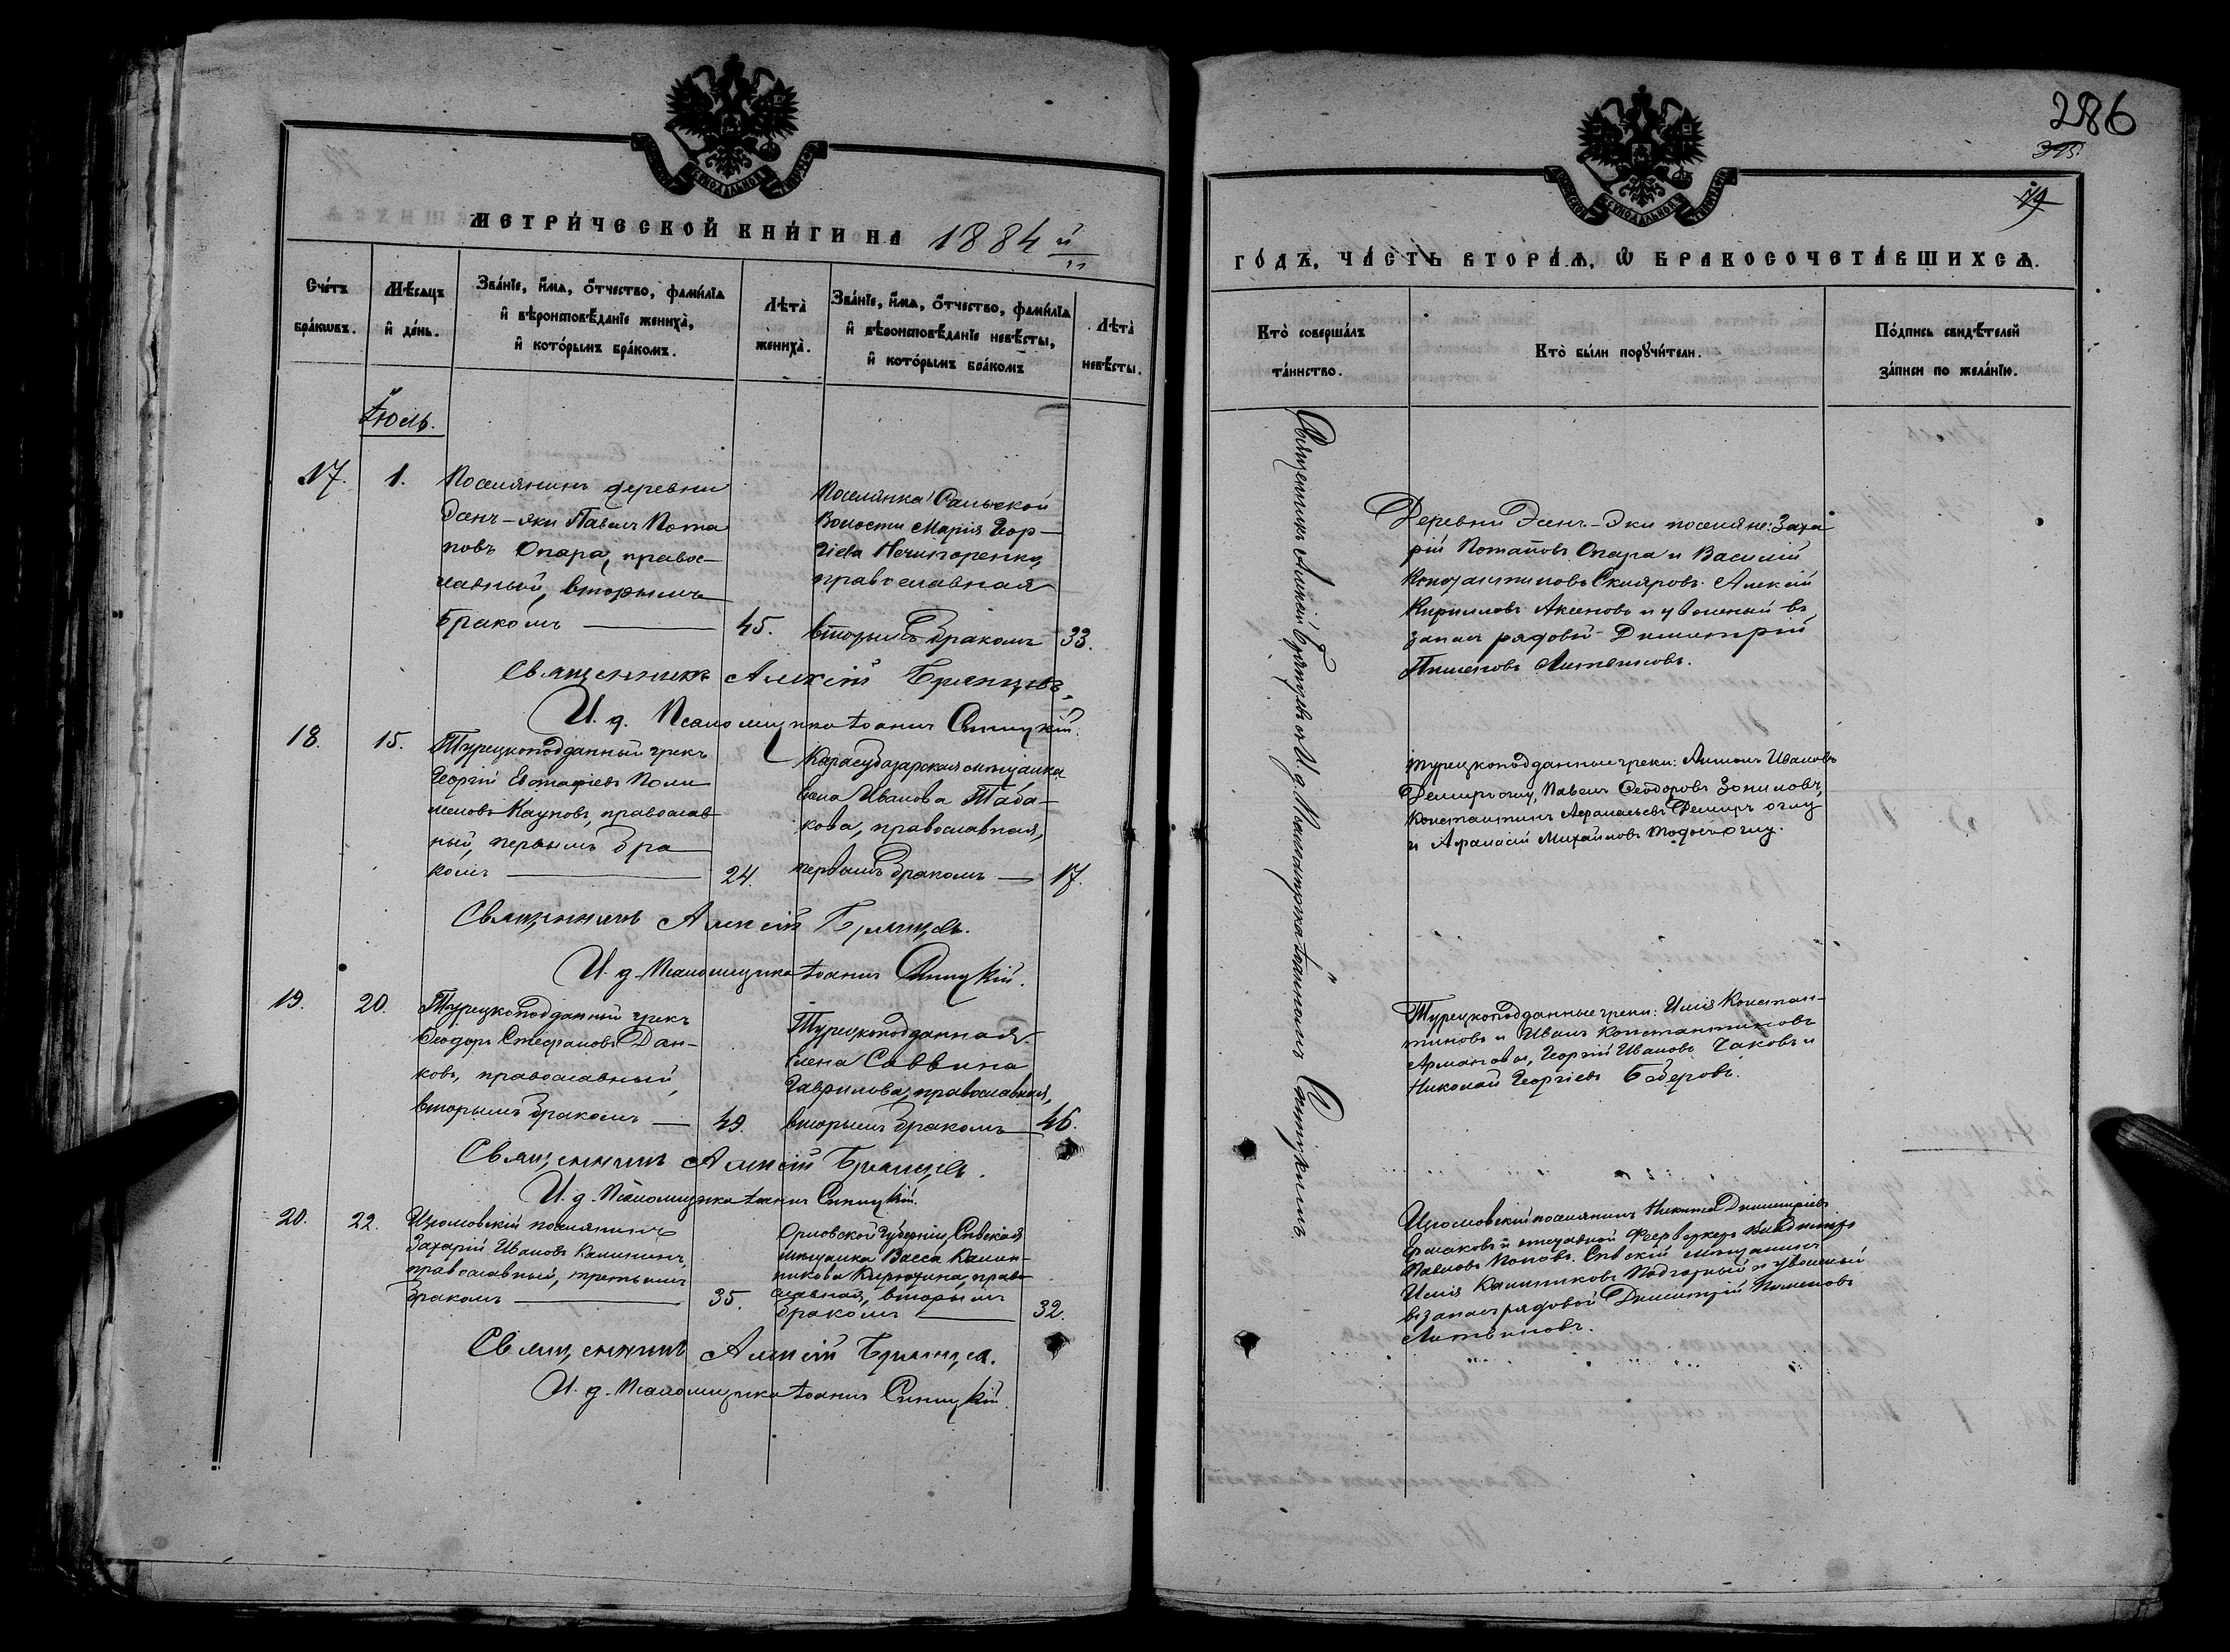 МЕТРИ́ЧЕСКОЙ КНИ́ГИ НА 1884 й
Сче́тъ бра́кωвъ.
Мѣ́сяцъ и҆ де́нь.
Зва́нїе, и҆́мѧ, ѻ҆́тчество, фами́лїѧ и҆ вѣроисповѣ́данїе жениха̀, и҆ кото́рымъ бра́комъ.
Лѣта̀ жениха̀.
Зва́нїе, и҆́мѧ, ѻ҆́тчество, фами́лїѧ и҆ вѣроисповѣ́данїе невѣ́сты, и҆ кото́рымъ бра́комъ
Лѣта̀ невѣ́сты.
Іюль.
17.
1.
Поселянинъ деревни
Эсенъ-эки Павелъ Пота
повъ Опара, правос-
лавный, вторымъ
бракомъ
45.
Поселянка
Волости Марія Геор-
гіева Нечипоренко,
православная
вторымъ бракомъ
33.
Священникъ Алексій Брянцевъ.
И. д. Псаломщика Іоаннъ Синицкій.
18.
15.
Турецкоподданный грекъ
Георгій Евстафіевъ
православ
ный, первымъ бра
комъ
24.
Карасубазарская мѣщанка
Елена Иванова Таба-
кова, православная,
первымъ бракомъ
17.
Священникъ Алексій Брянцевъ.
И. д. Псаломщика Іоаннъ Синицкій.
19.
20.
Турецкоподданный грекъ
Ѳеодоръ Стефановъ Дан-
ковъ, православный,
вторымъ бракомъ
49.
Турецкоподданная
Елена Саввина
Гаврилова, православная,
вторымъ бракомъ
46.
Священникъ Алексій Брянцевъ.
И. д. Псаломщика Іоаннъ Синицкій.
20.
22.
поселянинъ
Захарій Ивановъ Калининъ,
православный, третьимъ
бракомъ
35.
Орловской Губерніи, Сѣвская
мѣщанка Васса Калин-
никова Кирюхина, право
славная, вторымъ
бракомъ
32.
Священникъ Алексій Брянцевъ.
И. д. Псаломщика Іоаннъ Синицкій.
286
315
79
ГО́ДЪ, ЧА́СТЬ ВТОРА́Ѧ, Ѽ БРАКОСОЧЕТА́ВШИХСѦ.
Кто̀ соверша́лъ та́инство.
Кто̀ бы́ли порꙋчи́тели.
По́дпись свидѣ́телей за́писи по жела́нїю.
Священникъ Алексій Брянцевъ и И. д. Псаломщика Іоанномъ Синицкимъ
Деревни Эсенъ-Эки поселяне: Заха
рій Потаповъ Опара и Василій
Константиновъ Скляровъ. Алексій
Кирилловъ Аксеновъ и уволеный въ
запасъ рядовой Димитрій
Пименовъ Литвиновъ.
Турецкоподданные греки: Антонъ Ивановъ
Демиръ оглу, Павелъ Ѳеодоровъ
Константинъ Афанасьевъ Демиръ оглу
и Афанасій Михайловъ
Турецкоподданные греки: Илія Констан-
тиновъ и Иванъ Константиновъ
Георгій Ивановъ Чаковъ и
Николай Георгіевъ
поселянинъ Никита Димитріевъ
Ермаковъ и отставной Фейерверкеръ
Павловъ Поповъ. Сѣвскій мѣщанинъ
Илія Калинниковъ и уволеный
въ запасъ рядовой Димитрій Пименовъ
Литвиновъ.